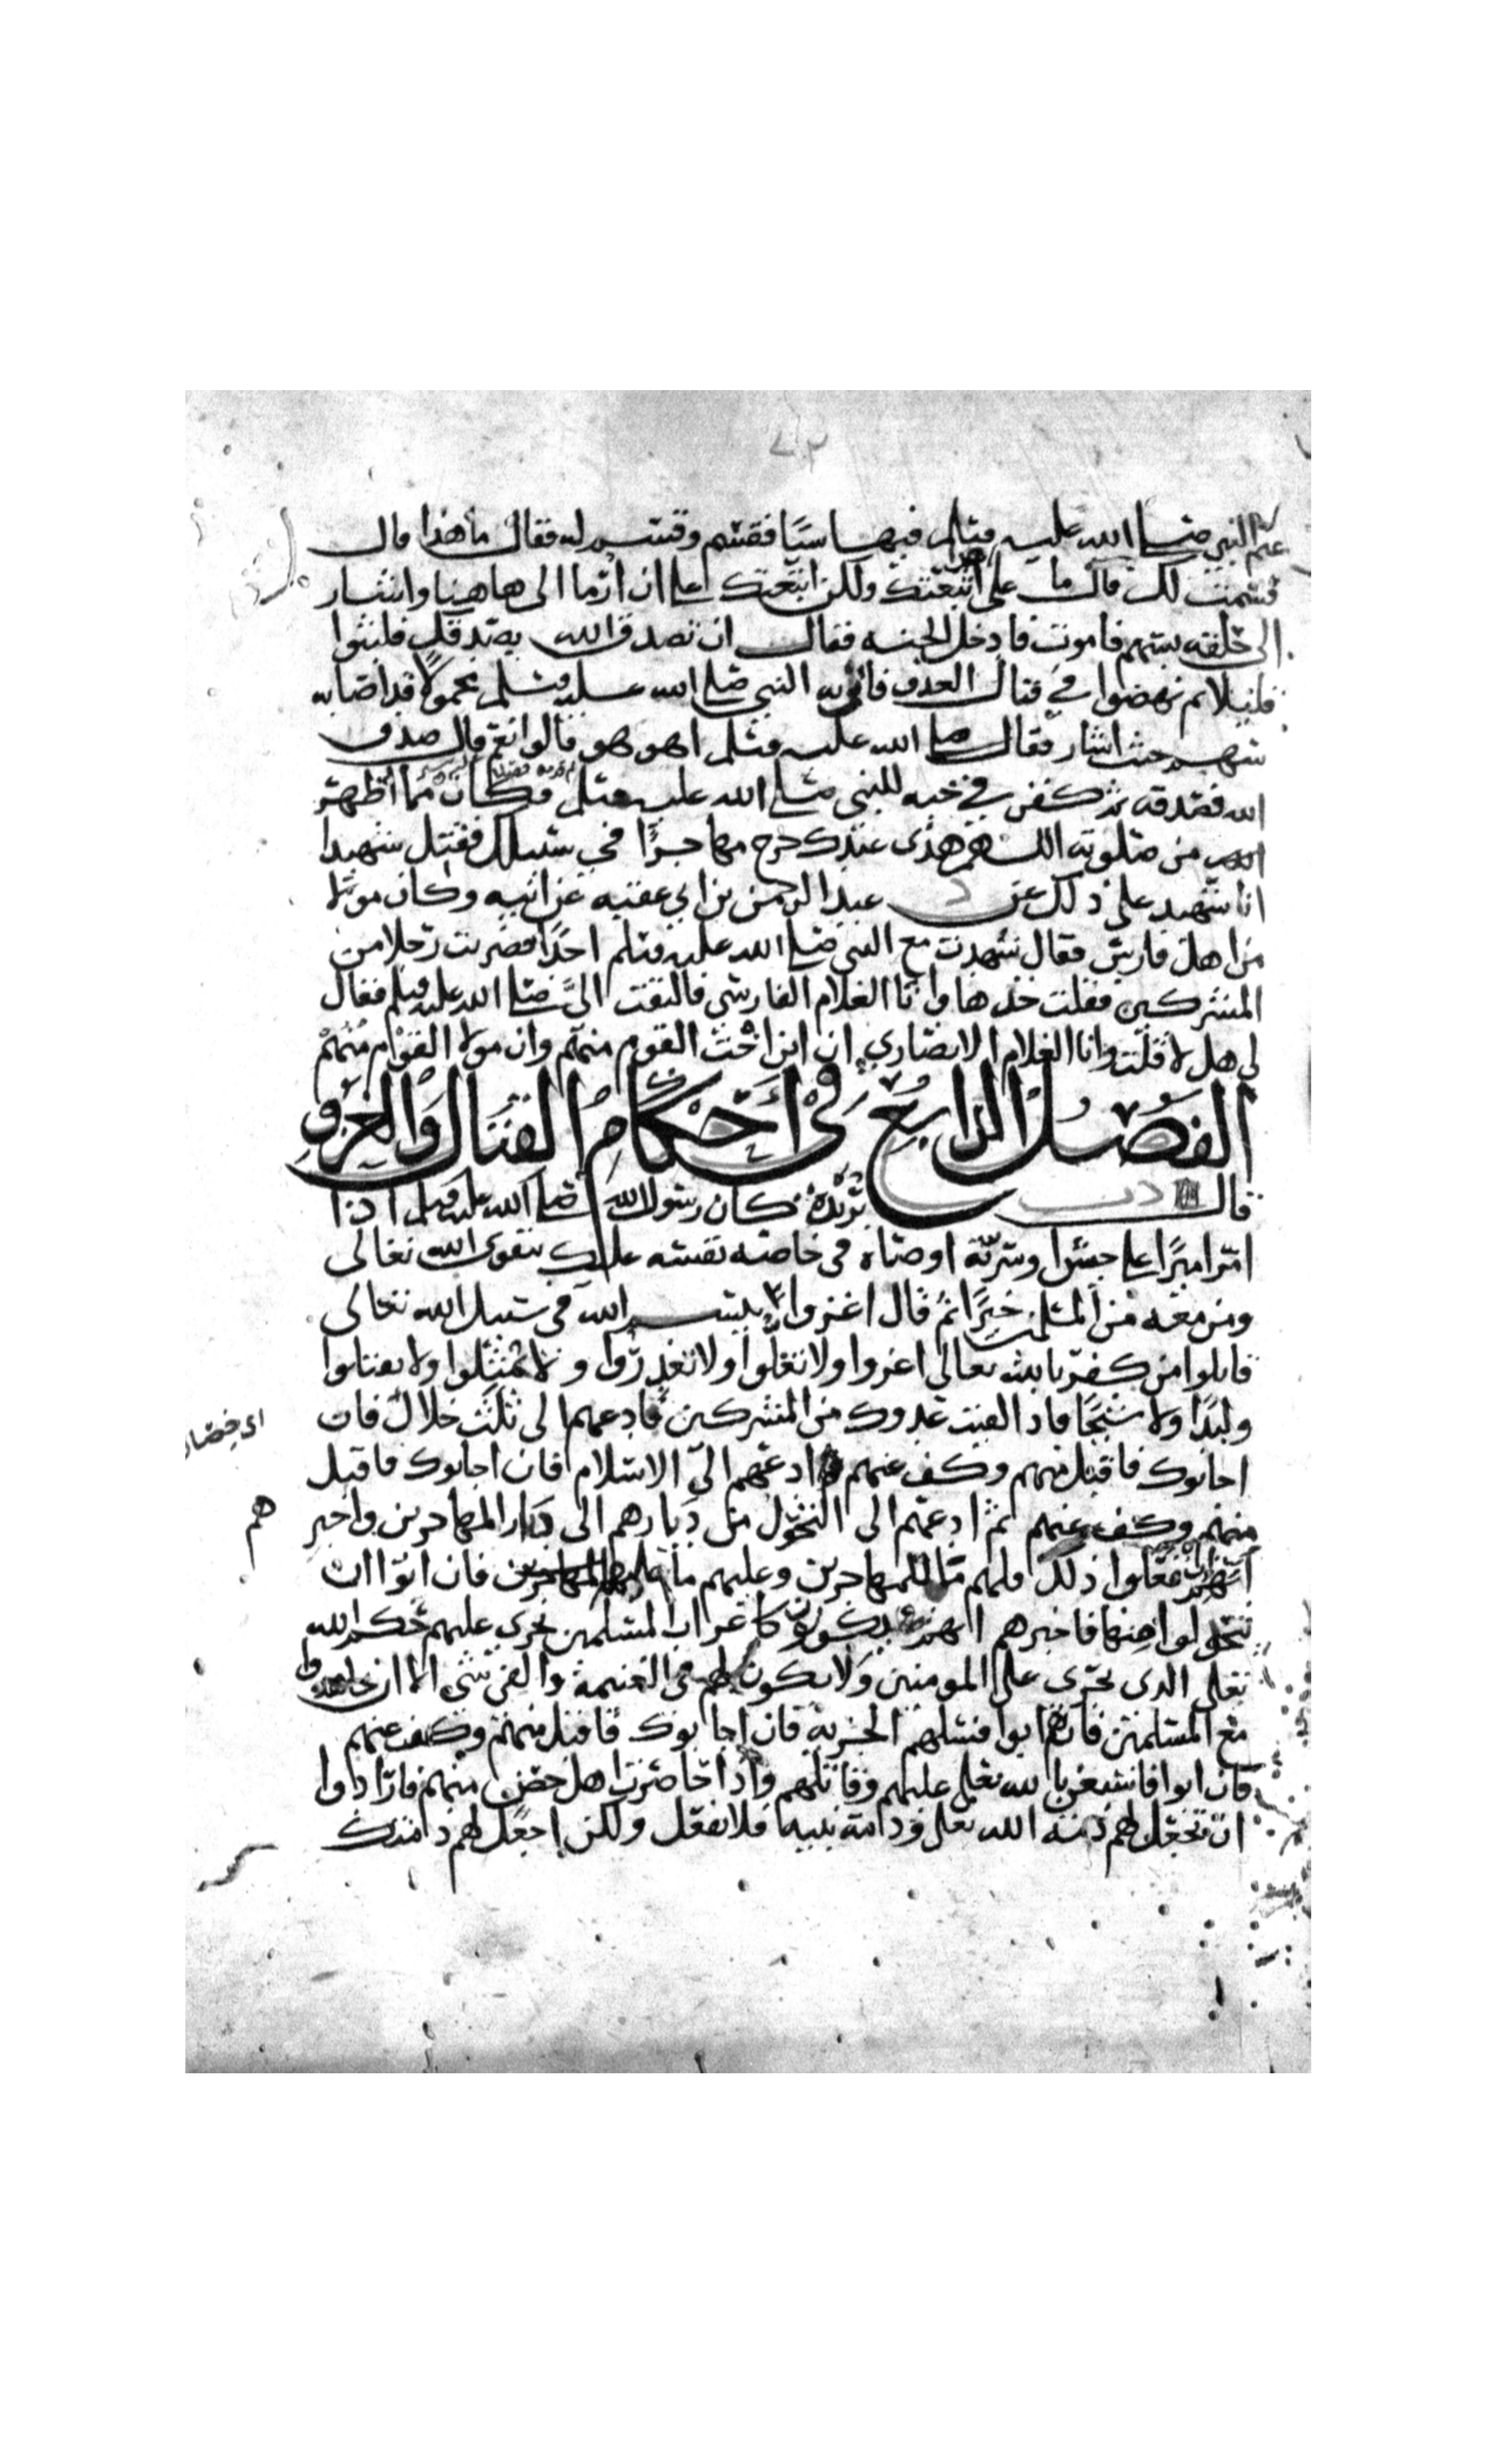 غنم النبي صلى الله عليه وسلم فيها سبيا فقسم وقسم له فقال ما هذا قال
قسمت لك قال ما على هذا اتبعتك ولكن اتبعتك على ان ارما الى هاهنا واشار
الى حلقه بسهم فاموت فادخل الجنه فقال ان تصدق الله يصدقك فلبثوا
قليلا ثم نهضوا في قتال العدو فاتي به النبي صلى الله عليه وسلم محمولا قد اصابه
سهم حيث اشار فقال صلى الله عليه وسلم اهو هو قالوا نعم قال صدق
الله فصدقه ثم كفن في جبه للنبي صلى الله عليه وسلم وكان مما اظهر
من صلوته اللهم هذى عبدك خرج مهاجرا في سبيلك فقتل شهيدا
انا شهيد على ذلك عن د عبد الرحمن بن ابي عقبه عن ابيه وكان مولا
من اهل فارس فقال شهدت مع النبي صلى الله عليه وسلم احدا فضربت رجلا من
المشركين فقلت خذها وانا الغلام الفارسي فالتفت الى صلى الله عليه وسلم فقال
لي هل لا قلت وانا الغلام الانصاري ان ابن اخت القوم منهم وان مولا القوم منهم
الفصل الرابع في احكام القتال والغزو
قال د ت بريدة كان رسول الله صلى الله عليه وسلم اذا
امر اميرا على جيش او سرية اوصاه في خاصته نفسه بتقوى الله تعالى
ومن معه من المسلمين خيرا ثم قال اغزوا بسم الله في سبيل الله تعالى
قاتلوا من كفر بالله تعالى اغزوا ولا تغلوا ولا تغدروا ولا تمثلوا ولا تقتلوا
وليدا ولا شيخا فاذا لقيت عدوك من المشركين فادعهم الى ثلث خلال فان
اي خصال
اجابوك فاقبل منهم وكف عنهم ادعهم الى الاسلام فان اجابوك فاقبل
منهم وكف عنهم ثم ادعهم الى التحول من ديارهم الى ديار المهاجرين واخبر
هم
انهم ان فعلوا ذلك فلهم ما للمهاجرين وعليهم ما على المهاجرين فان ابوا ان
يتحولوا منها فاخبرهم انهم يكونون كاعراب المسلمين يجري عليهم حكم الله
تعلى الذي يجرى على المومنين ولا يكون لهم في الغنيمة والفي شي الا ان يجاهدوا
مع المسلمين فان هم ابوا فسلهم الجزية فان اجابوك فاقبل منهم وكف عنهم
فان ابوا فاستعن بالله تعلى عليهم وقاتلهم واذا حاصرت اهل حصن منهم فارادوا
ان تجعل لهم ذمة الله تعلى وذمة نبيه فلا تفعل ولكن اجعل لهم ذمتك